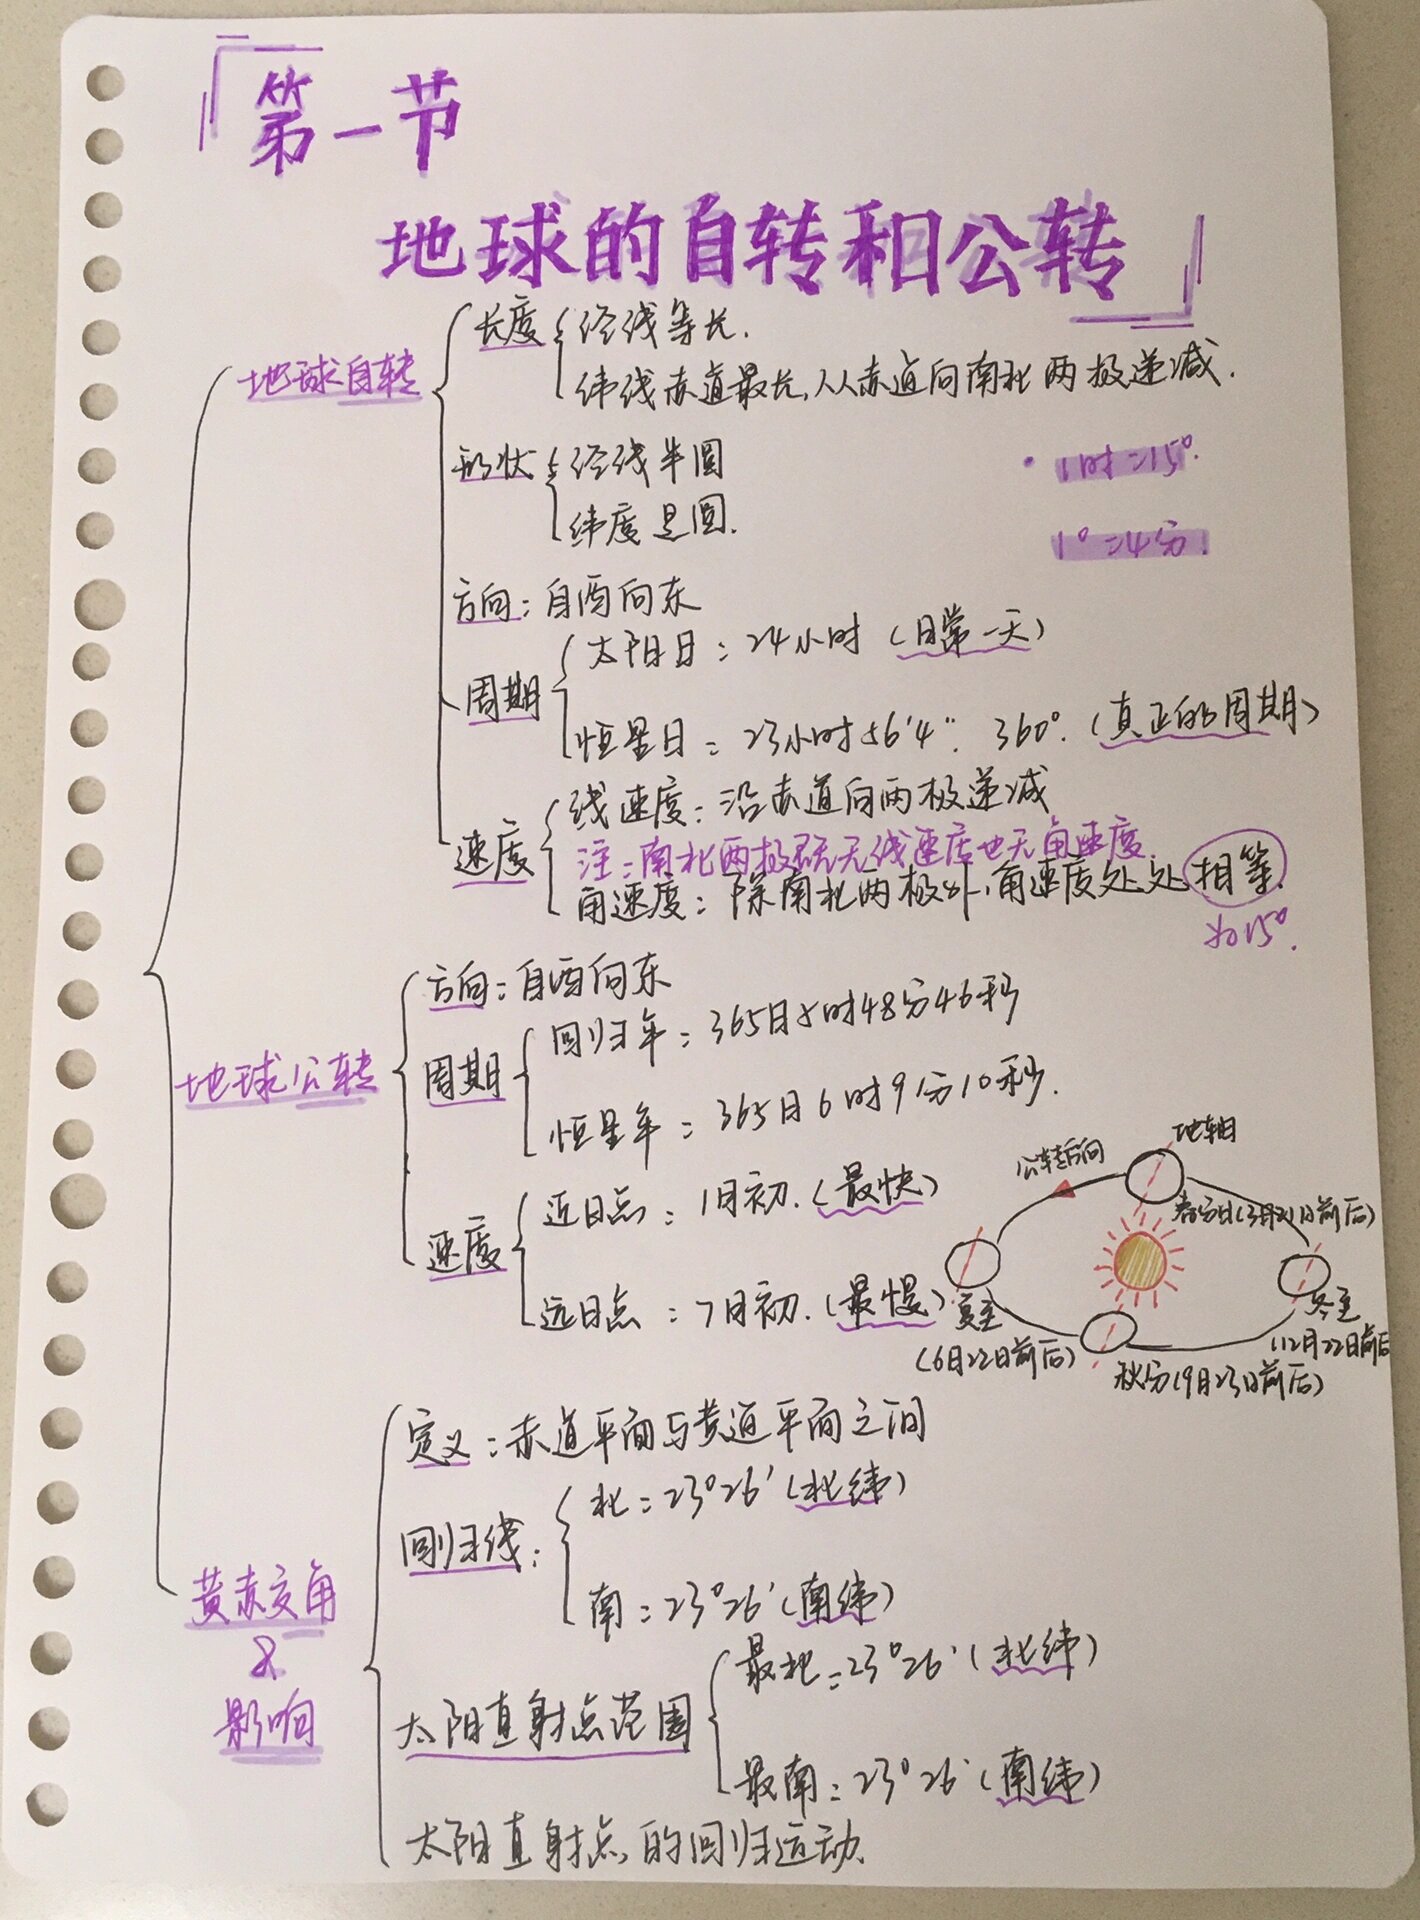 第一节
地球的自转和公转
地球自转
长度
经线等长.
纬线赤道最长,从赤道向南北两极递减.
形状
经线半圆
纬度是圆.
1时=15°.
1°=4分.
方向:自西向东
周期
太阳日:24小时(日常一天)
恒星日=23小时56'4". 360°.(真正的周期)
速度
线速度:沿赤道向两极递减
注:南北两极既无线速度也无角速度.
角速度:除南北两极外,角速度处处相等.
为15°.
地球公转
方向:自西向东
周期
回归年:365日5时48分46秒
恒星年:365日6时9分10秒.
速度
近日点:1月初.(最快)
远日点:7月初.(最慢)
地轴
公转方向
春分日(3月21日前后)
夏至
(6月22日前后)
冬至
(12月22日前后
秋分(9月23日前后)
黄赤交角
&
影响
定义:赤道平面与黄道平面之间
回归线:
北:23°26'(北纬)
南:23°26'(南纬)
太阳直射点范围
最北:23°26'(北纬)
最南:23°26'(南纬)
太阳直射点的回归运动.